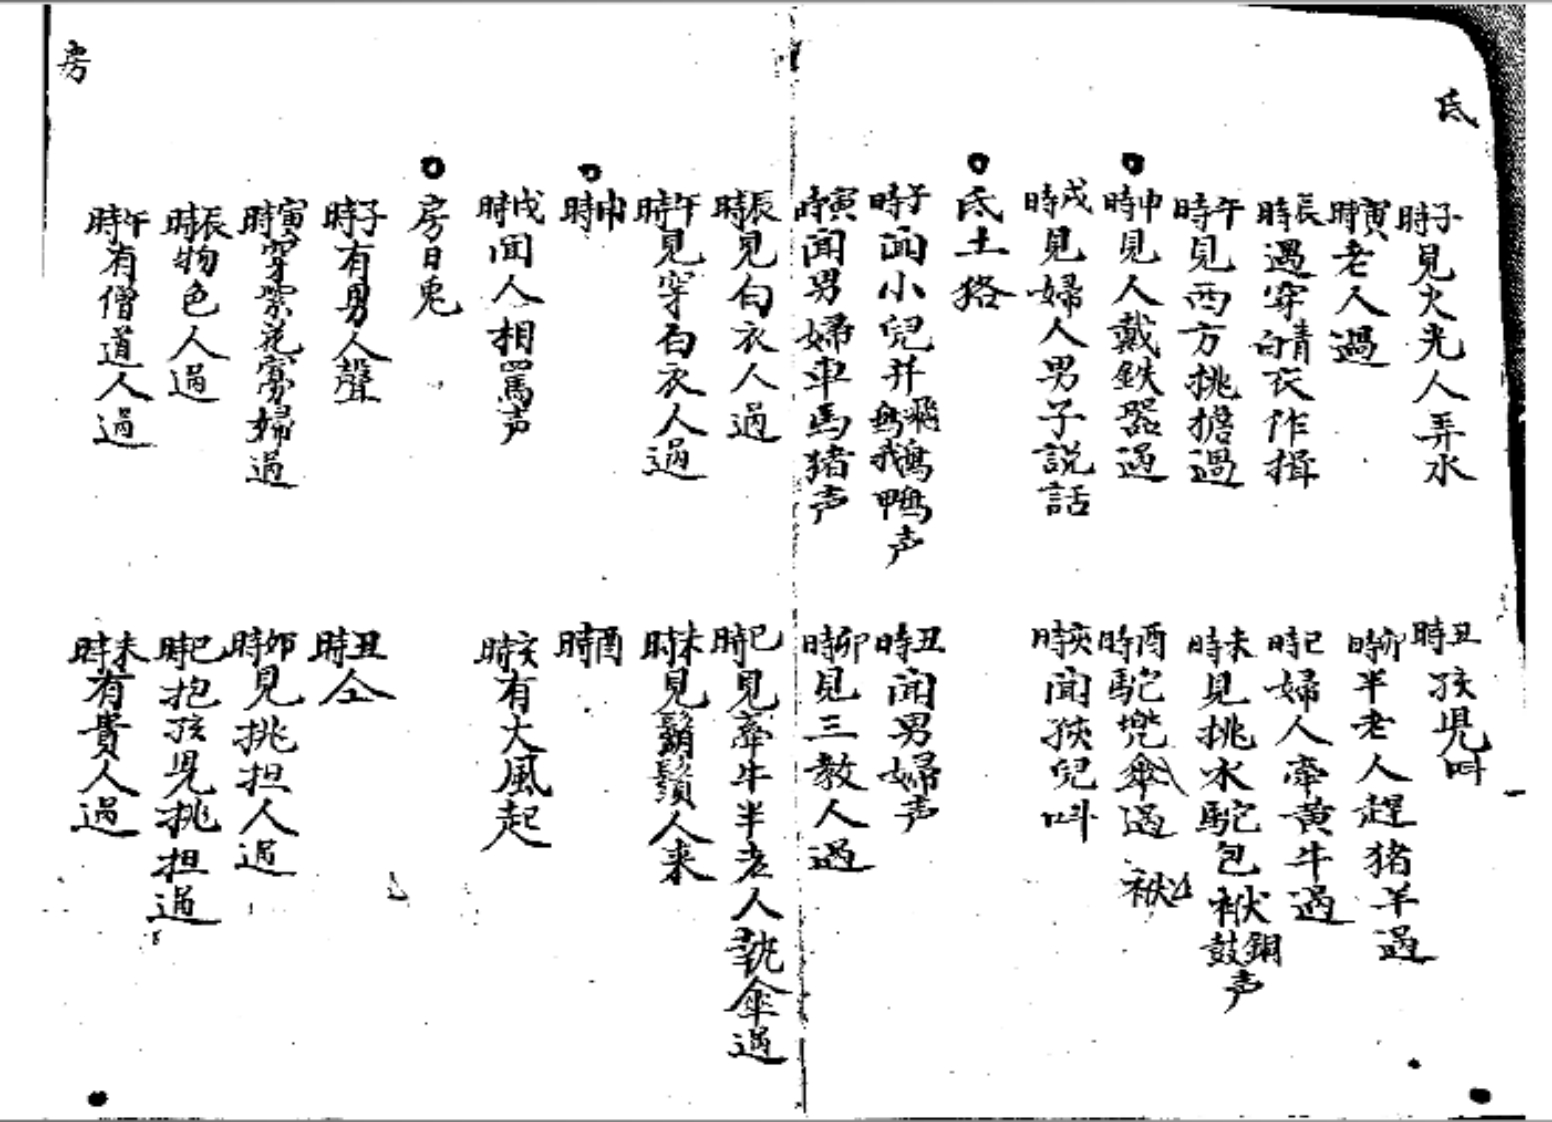 氐
子時見火光人弄水
丑時孩児叫
寅時老人過
卯時半老人趕猪羊過
辰時遇穿青白衣作揖
巳時婦人牽黄牛過
午時見西方挑擔過
未時見挑水駝包袱銅鼓声
申時見人戴鉄器過
酉時駝兠傘過
袱
戌時見婦人男子説話
亥時聞孩兒叫
氐土狢
子時聞小兒并飛鳥鵝鴨声
丑時聞男婦声
寅時聞男婦車馬猪声
卯時見三教人過
辰時見白衣人過
巳時見牽牛半老人執傘過
午時見穿白衣人過
未時見鬍鬚人来
申時
酉時
戌時聞人相罵声
亥時有大風起
房日兎
子時有男人聲
丑時仝
寅時穿紫花寡婦過
卯時見挑担人過
辰時物色人過
巳時抱孩児挑担過
午時有僧道人過
未時有貴人過
房